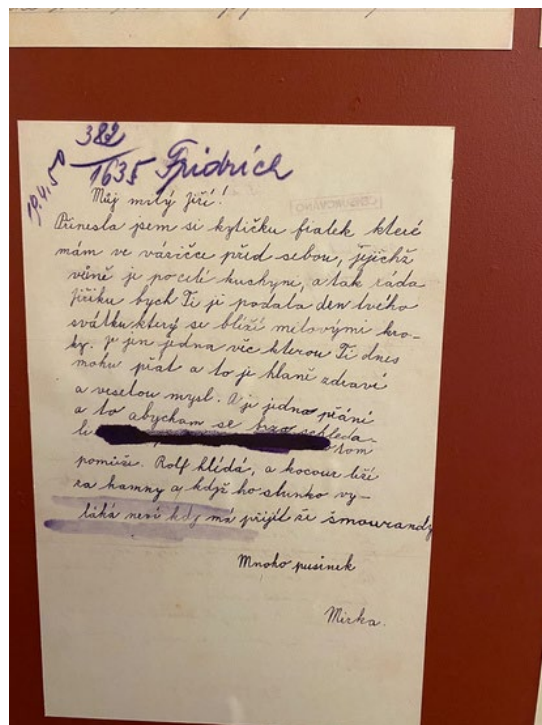 382
1635 Fridrich
19.4.50
Můj milý Jiří!
Přinesla jsem si kytičku fialek které
mám ve vásičce před sebou, jejichž
vůně je po celé kuchyni, a tak ráda
Jiříku bych Ti ji podala den tvého
svátku který se blíží mílovými kro-
ky. Je jen jedna věc kterou Ti dnes
mohu přát a to je hlavně zdraví
a veselou mysl. A je jedno přání
a to abychom se brzo schleda-
li
tom
pomůže. Rolf hlídá, a kocour leží
za kamny a když ho slunko vy-
láká neví kdy má přijít ze šmourandy
Mnoho pusinek
Mirka.